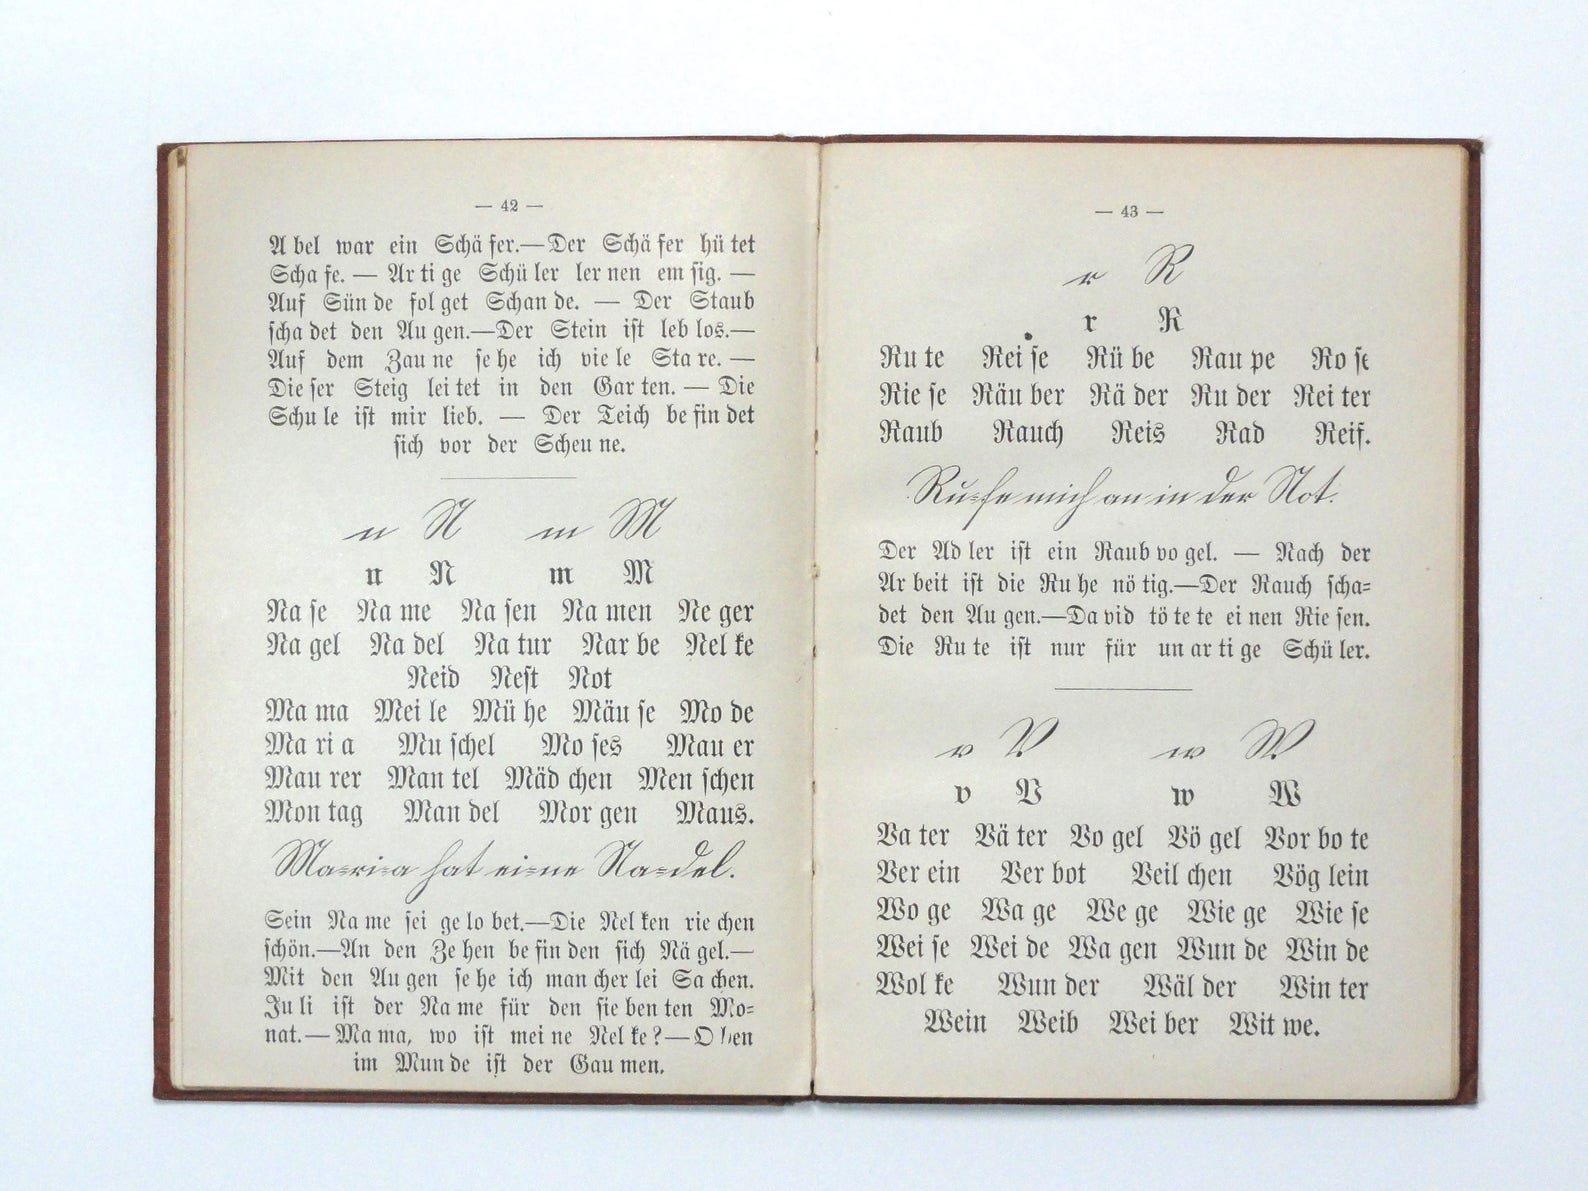 — 42 —
A bel war ein Schä fer.—Der Schä fer hü tet
Scha fe. — Ar ti ge Schü ler ler nen em sig. —
Auf Sün de fol get Schan de. — Der Staub
scha det den Au gen.—Der Stein ist leb los.—
Auf dem Zau ne se he ich vie le Sta re. —
Die ser Steig lei tet in den Gar ten. — Die
Schu le ist mir lieb. — Der Teich be fin det
sich vor der Scheu ne.
n N m M
n N m M
Na se Na me Na sen Na men Ne ger
Na gel Na del Na tur Nar be Nel ke
Neid Nest Not
Ma ma Mei le Mü he Mäu se Mo de
Ma ri a Mu schel Mo ses Mau er
Mau rer Man tel Mäd chen Men schen
Mon tag Man del Mor gen Maus.
Ma=ri=a hat ei=ne Na=del.
Sein Na me sei ge lo bet.—Die Nel ken rie chen
schön.—An den Ze hen be fin den sich Nä gel.—
Mit den Au gen se he ich man cher lei Sa chen.
Ju li ist der Na me für den sie ben ten Mo=
nat.— Ma ma, wo ist mei ne Nel ke?— O ben
im Mun de ist der Gau men.
— 43 —
r R
r R
Ru te Rei se Rü be Rau pe Ro se
Rie se Räu ber Rä der Ru der Rei ter
Raub Rauch Reis Rad Reif.
Ru=fe mich an in der Not.
Der Ad ler ist ein Raub vo gel. — Nach der
Ar beit ist die Ru he nö tig.—Der Rauch scha=
det den Au gen.—Da vid tö te te ei nen Rie sen.
Die Ru te ist nur für un ar ti ge Schü ler.
v V w W
v V w W
Va ter Vä ter Vo gel Vö gel Vor bo te
Ver ein Ver bot Veil chen Vög lein
Wo ge Wa ge We ge Wie ge Wie se
Wei se Wei de Wa gen Wun de Win de
Wol ke Wun der Wäl der Win ter
Wein Weib Wei ber Wit we.